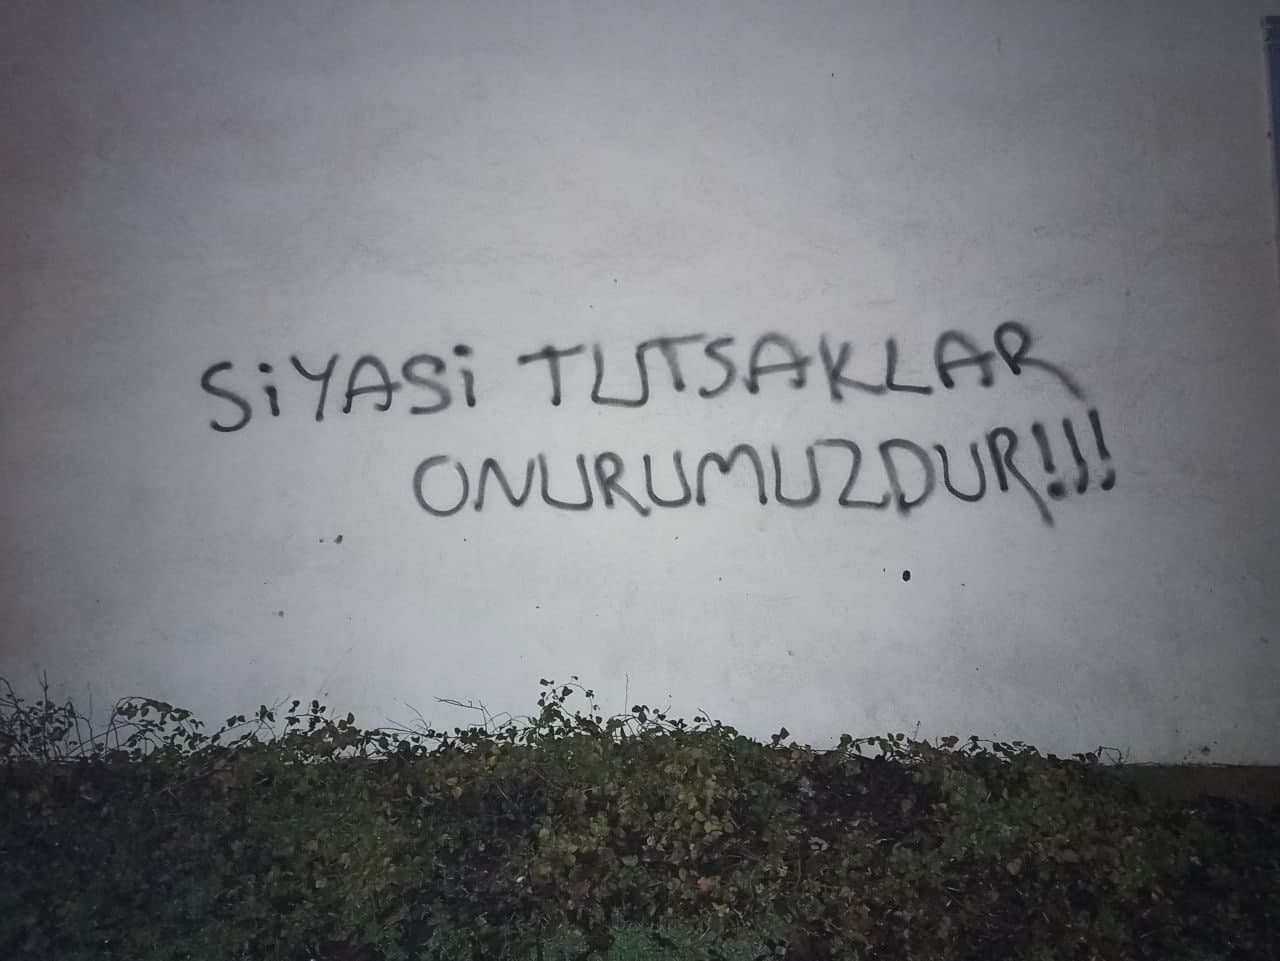 SİYASİ TUTSAKLAR
ONURUMUZDUR!!!